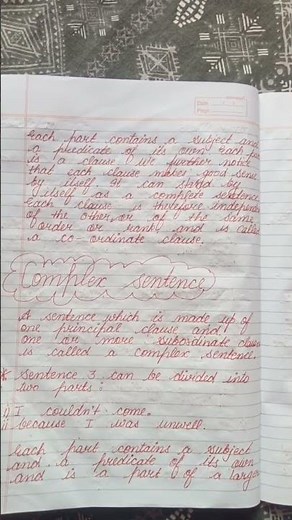 Date
Page
Each part contains a subject and
a predicate of its own Each part
is a clause we further note
that each clause makes good sense
by itself. It can stand by
itself as a complete sentence
Each clause is therefore independent
of the other or of the same
order or rank and is called
a co-ordinate clause.
Complex sentence
A sentence which is made up of
one principal clause and
one or more subordinate clause
is called a complex sentence.
* Sentence 3 can be divided into
two parts:
i) I couldn't come.
ii because I was unwell.
Each part contains a subject
and a predicate of its own
and is a part of a larger